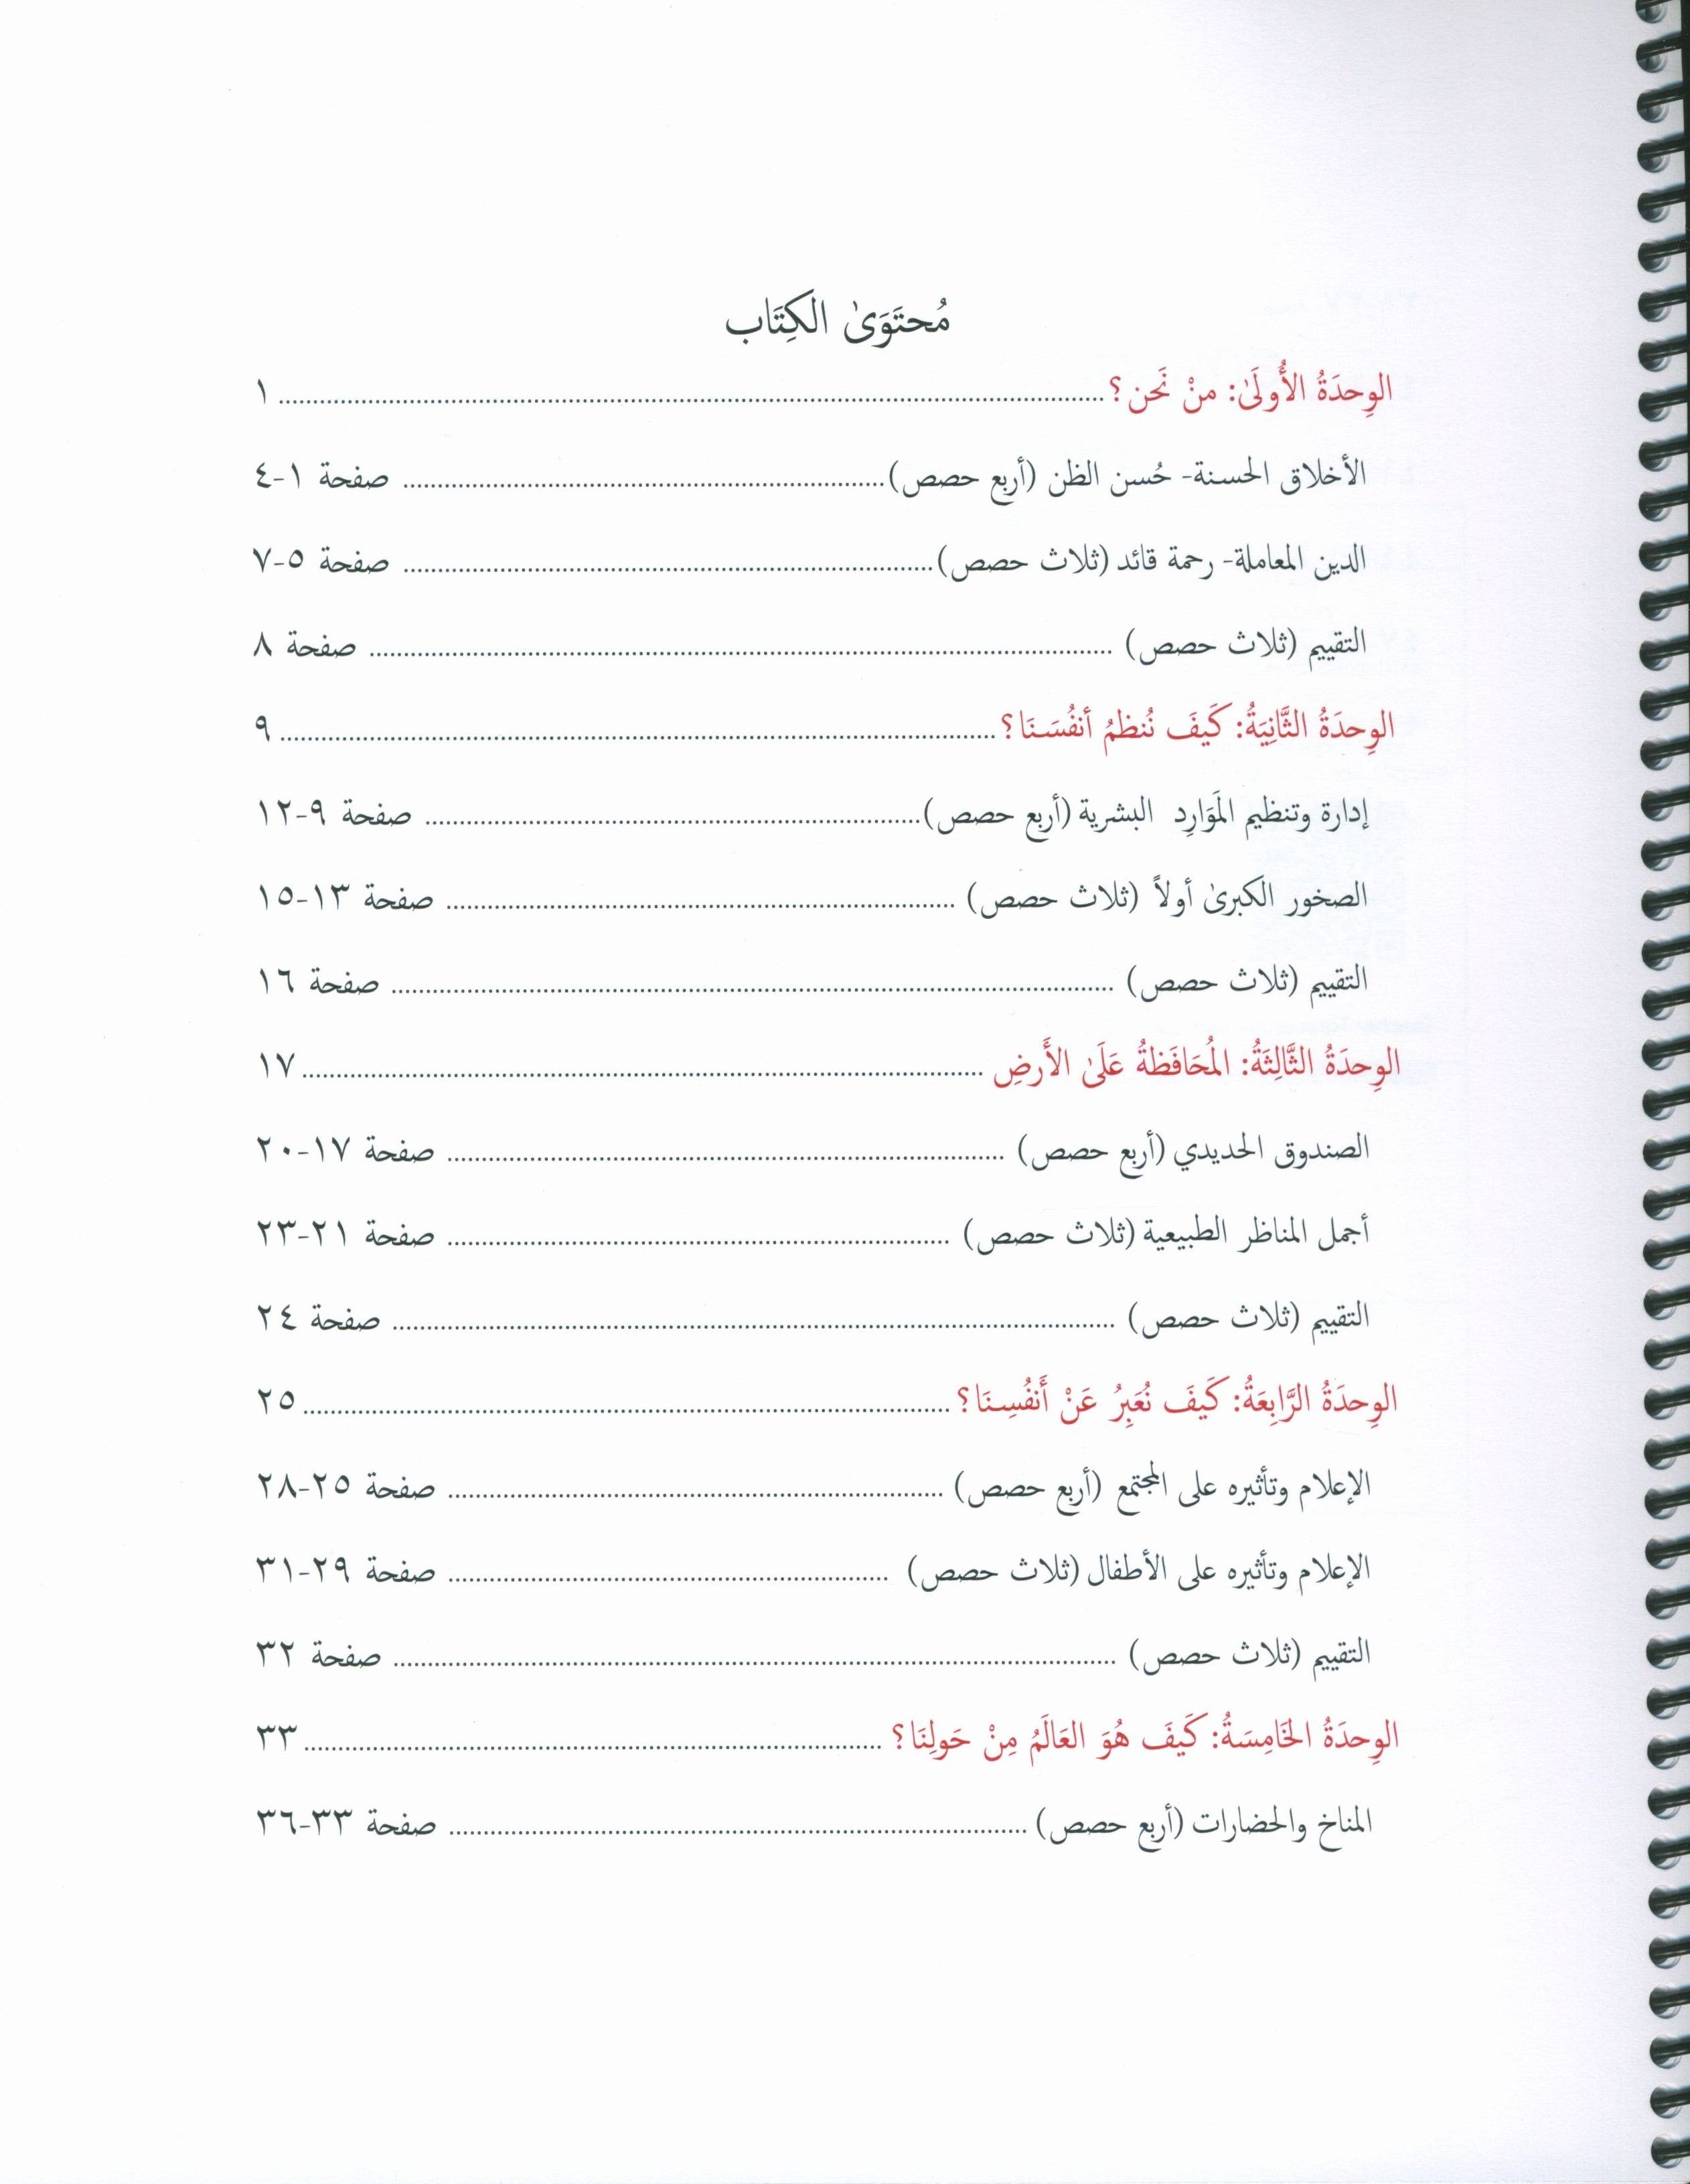 مُحتَوَىٰ الكِتَاب
الوِحدَةُ الأُولَىٰ: منْ نَحن؟ ........ ١
الأخلاق الحسنة- حُسن الظن (أربع حصص) ........ صفحة ١-٤
الدين المعاملة- رحمة قائد (ثلاث حصص) ........ صفحة ٥-٧
التقييم (ثلاث حصص) ........ صفحة ٨
الوِحدَةُ الثَّانِيَةُ: كَيفَ نُنظمُ أنفُسَنَا؟ ........ ٩
إدارة وتنظيم المَوَارِد البشرية (أربع حصص) ........ صفحة ٩-١٢
الصخور الكبرىٰ أولاً (ثلاث حصص) ........ صفحة ١٣-١٥
التقييم (ثلاث حصص) ........ صفحة ١٦
الوِحدَةُ الثَّالِثَةُ: المُحَافَظةُ عَلَىٰ الأَرضِ ........ ١٧
الصندوق الحديدي (أربع حصص) ........ صفحة ١٧-٢٠
أجمل المناظر الطبيعية (ثلاث حصص) ........ صفحة ٢١-٢٣
التقييم (ثلاث حصص) ........ صفحة ٢٤
الوِحدَةُ الرَّابِعَةُ: كَيفَ نُعَبِرُ عَنْ أَنفُسِنَا؟ ........ ٢٥
الإعلام وتأثيره على المجتمع (أربع حصص) ........ صفحة ٢٥-٢٨
الإعلام وتأثيره على الأطفال (ثلاث حصص) ........ صفحة ٢٩-٣١
التقييم (ثلاث حصص) ........ صفحة ٣٢
الوِحدَةُ الخَامِسَةُ: كَيفَ هُوَ العَالَمُ مِنْ حَولِنَا؟ ........ ٣٣
المناخ والحضارات (أربع حصص) ........ صفحة ٣٣-٣٦